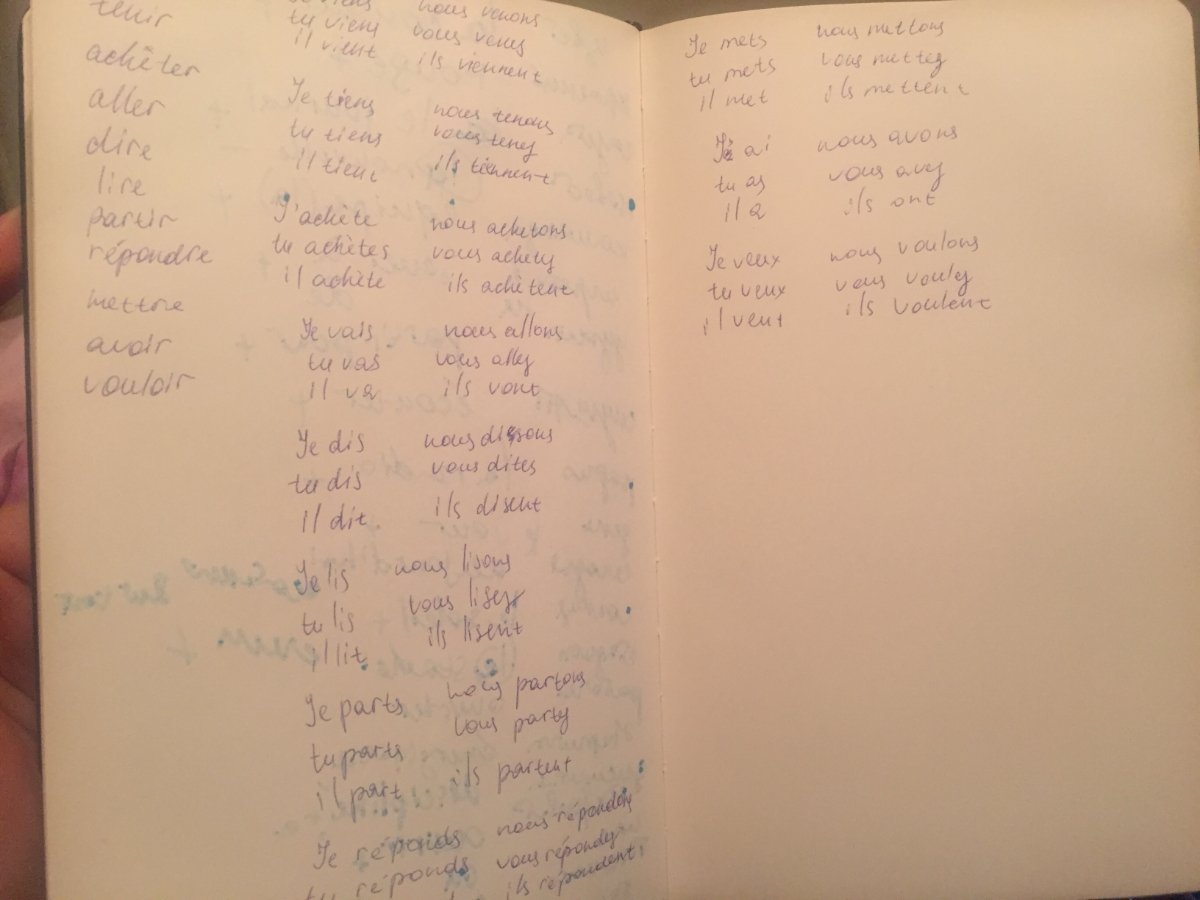 tenir
achêter
aller
dire
lire
partir
répondre
mettre
avoir
vouloir
Je viens nous venons
tu viens vous venez
il vient ils viennent
Je tiens nous tenons
tu tiens vous tenez
il tient ils tiennent
J'achète nous achetons
tu achètes vous achetez
il achète ils achètent
Je vais nous allons
tu vas vous allez
il va ils vont
Je dis nous disons
tu dis vous dites
il dit ils disent
Je lis nous lisons
tu lis vous lisez
il lit ils lisent
Je parts nous partons
tu parts vous partez
il part ils partent
Je réponds nous répondons
tu réponds vous répondez
ils répondent
Je mets nous mettons
tu mets vous mettez
il met ils mettent
J'ai nous avons
tu as vous avez
il a ils ont
Je veux nous voulons
tu veux vous voulez
il veut ils voulent